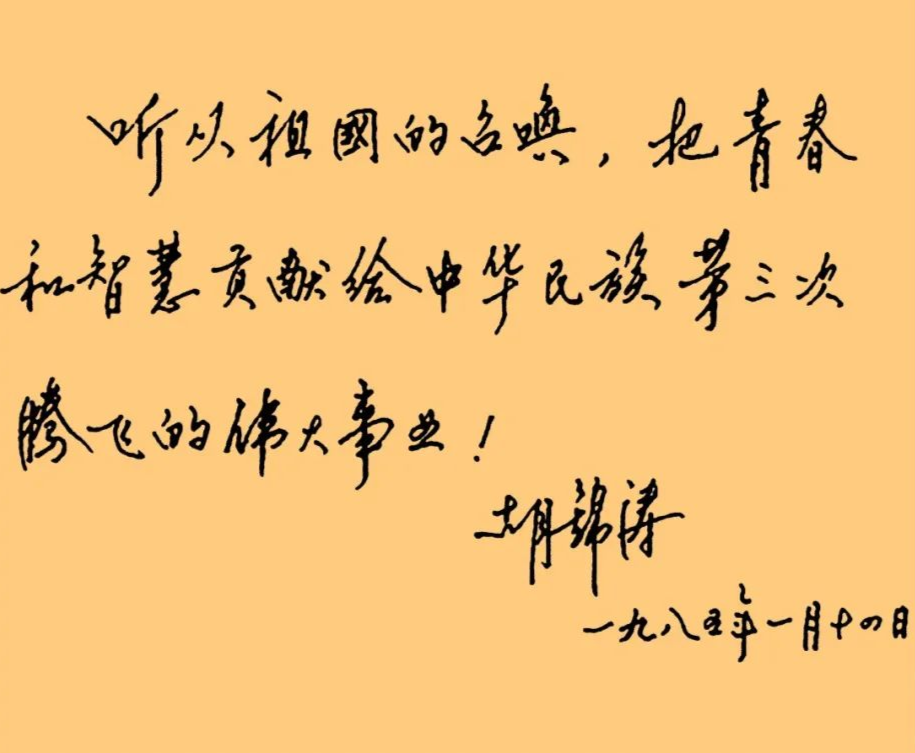 听从祖國的召喚，把青春
和智慧贡献给中华民族第三次
腾飞的伟大事业！
胡錦涛
一九八五年一月十四日